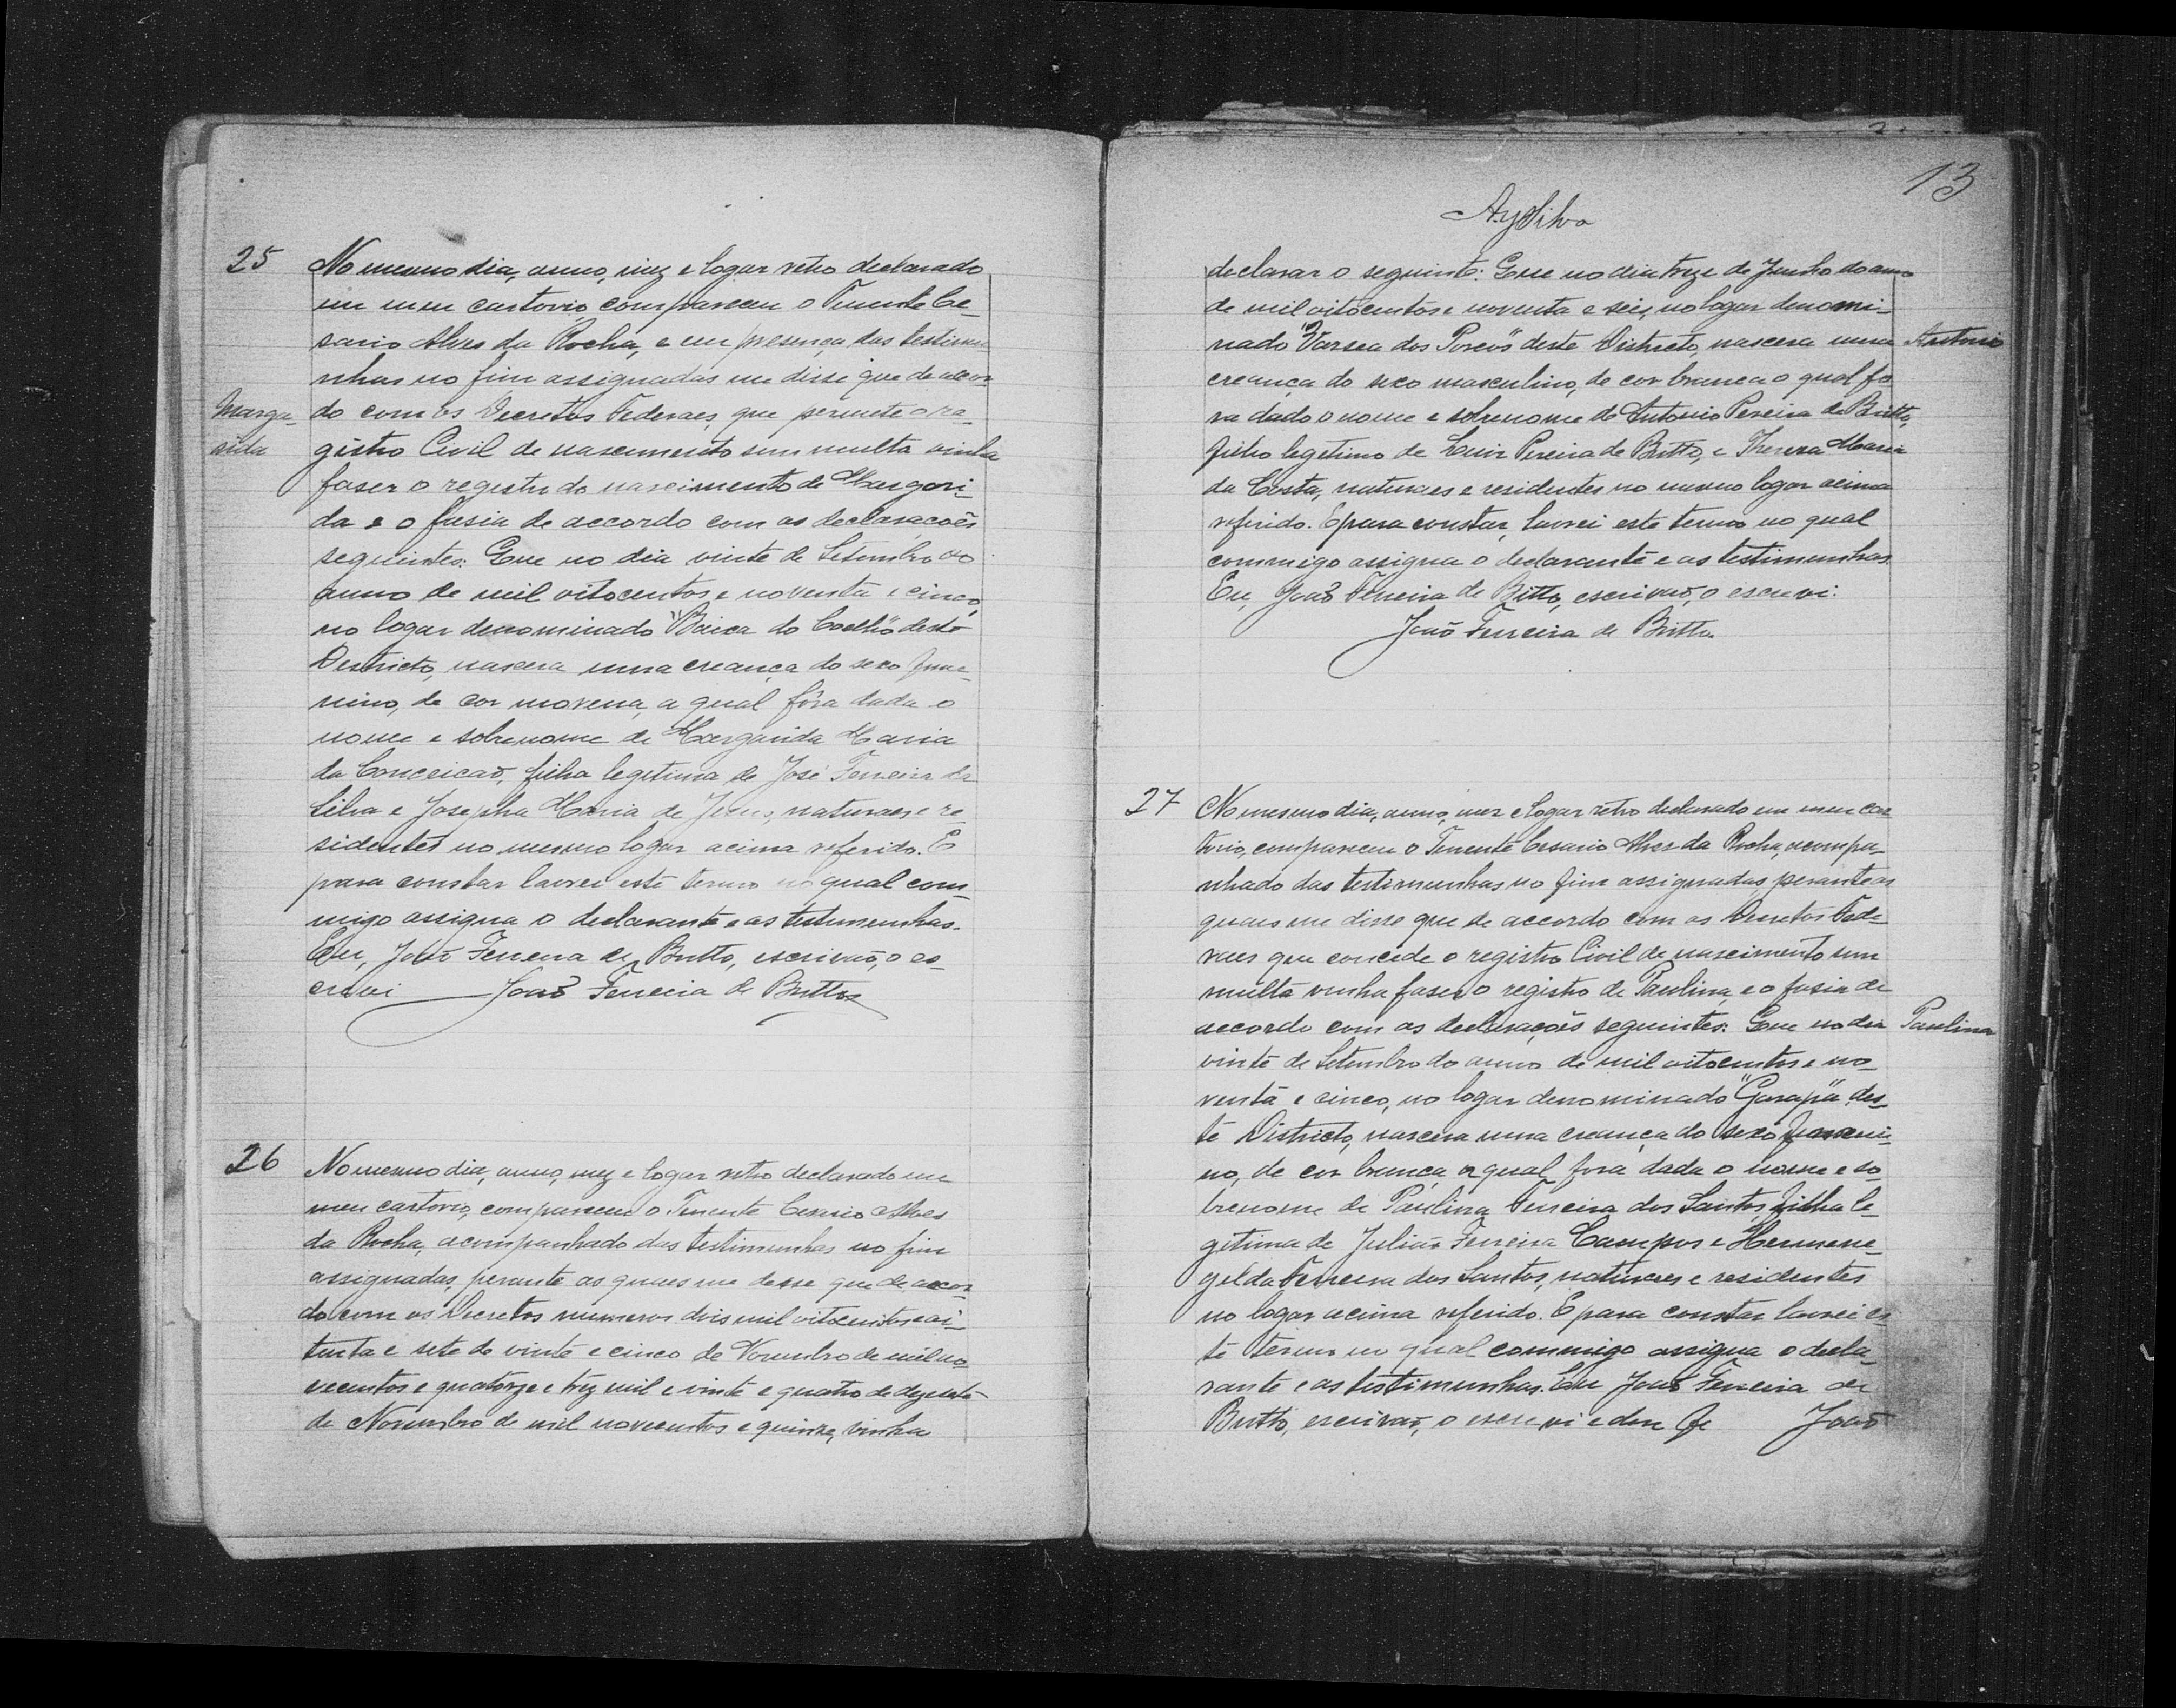 25
No mesmo dia, anno, mez e logar retro declarado
em meu cartorio, compareceu o Tenente Ce-
sario Alves da Rocha, e em presença das testimu-
nhas no fim assignadas me disse que de accor-
Marga-
rida
do com os Decretos Federaes, que permete o re-
gistro Civil de nascimento sem multa vinha
faser o registro do nascimento de Margari-
da e o fasia de accordo com as declaraçoẽs
seguintes: Que no dia vinte de Setembro do
anno de mil oitocentos e noventa e cinco,
no logar denominado "Baixa do Coelho" deste
Destricto, nascera uma creança do sexo feme-
nino, de cor morena, a qual fôra dada o
nome e sobrenome de Margarida Maria
da Conceicaõ, filha legetima de José Ferreira da
Silva e Josepha Maria de Jesus, naturaes e re-
sidentes no mesmo logar acima referido. E
para constar lavrei este termo no qual com-
migo assigna o declarante e as testimunhas.
Eu, João Ferreira de Britto, escrivaõ, o es-
crevi João Ferreira de Britto
26
No mesmo dia, anno, mez e logar retro declarado em
meu cartorio, compareceu o Tenente Cesario Alves
da Rocha, acompanhado das testimunhas no fim
assignadas, perante as quaes me desse que de accor-
do com os Decretos numeros dois mil oitocentos e oi-
tenta e sete de vinte e cinco de Novembro de mil no-
vecentos e quatorze e trez mil e vinte e quatro de dezesete
de Novembro de mil novecentos e quinze, vinha
13
AySilva
declarar o seguinte: Que no dia treze de Junho do anno
de mil oitocentos e noventa e seis, no logar denomi-
nado "Varsea dos Porcos" deste Districto, nascera uma
Antonio
creança do sexo masculino, de cor branca o qual fo-
ra dado o nome e sobrenome de Antonio Pereira de Britto,
filho legetimo de Luiz Pereira de Britto, e Thereza Maria
da Costa, naturaes e residentes no mesmo logar acima
referido. E para constar, lavrei este termo no qual
commigo assigna o declarante e as testimunhas.
Eu, João Ferreira de Bitto, escrivaõ, o escrevi.
João Ferreira de Britto
27
No mesmo dia, anno, mez e logar retro declarado em meu car-
torio, compareceu o Tenente Cesario Alves da Rocha, acompa-
nhado das testimunhas no fim assignadas, perante as
quaes me disse que de accordo com os Decretos Fede-
raes que concede o registro Civil de nascimento sem
multa vinha faser o registro de Paulina, e o fasia de
accordo com as declaraçoẽs seguintes: Que no dia
Paulina
vinte de Setembro do anno de mil oitocentos e no-
venta e cinco, no logar denominado "Garapa" des-
te Districto, nascera uma creança do sexo femeni-
no, de cor branca, a qual fora dada o nome e so-
brenome de Paulina Ferreira dos Santos, filha le-
getima de Julião Ferreira Campos e Hermene-
gelda Ferreira dos Santos, naturaes e residentes
no logar acima referido. E para constar lavrei es-
te termo no qual commigo assigna o decla-
rante e as testimunhas. Eu João Ferreira de
Britto, escrivaõ, o escrevi e dou fe João